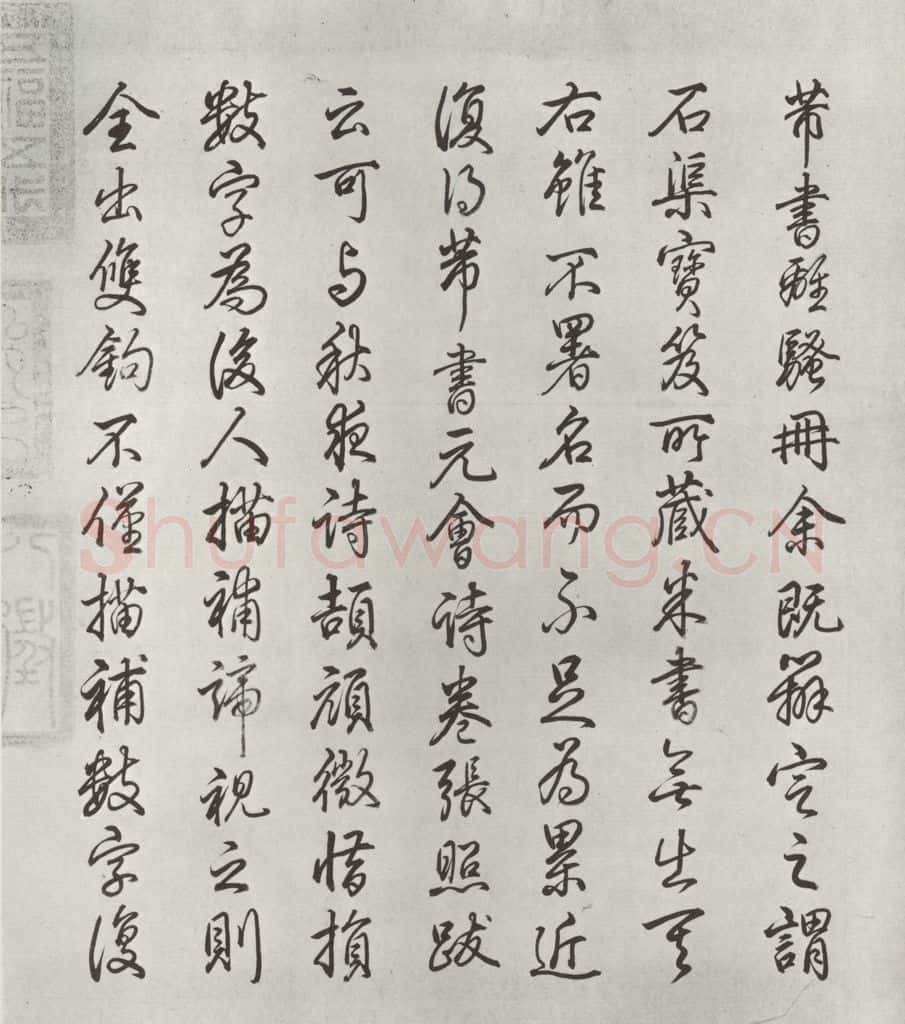 芾書離騷冊余既辨定之謂
石渠寶笈所藏米書無出其
右雖不署名而不足為累近
復得芾書元會詩卷張照跋
云可与秋夜詩頡頏微惜損
數字為後人描補諦視之則
全出雙鈎不僅描補數字復
Shufawang.CN